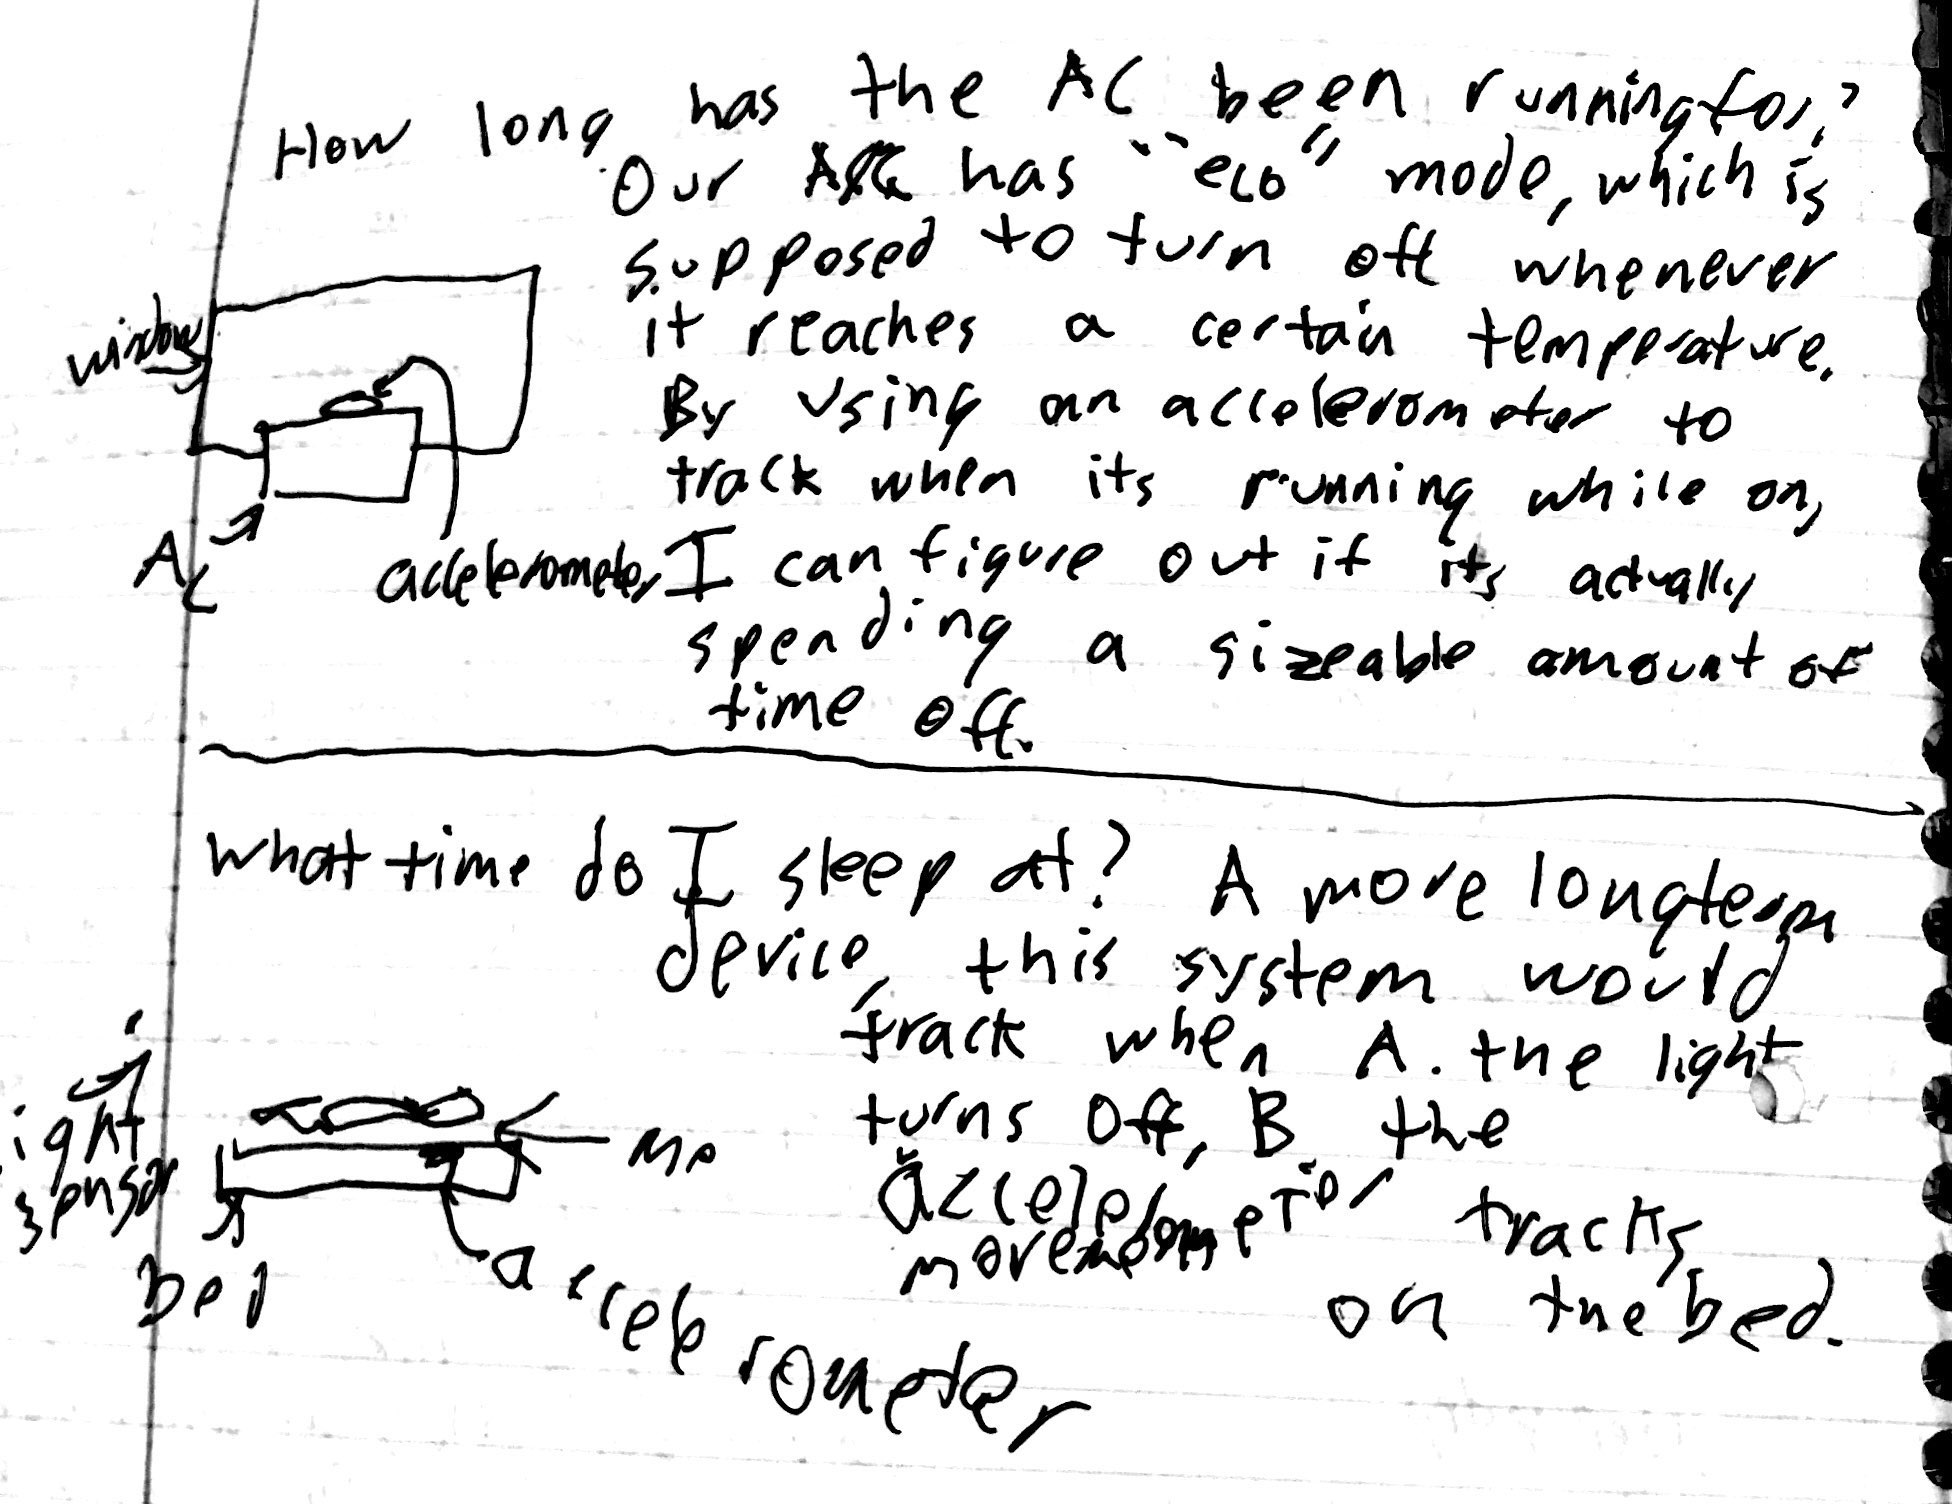 How long has the AC been running for?
Our AC has "eco" mode, which is
supposed to turn off whenever
it reaches a certain temperature.
By using an accelerometer to
track when its running while on,
I can figure out if its actually
spending a sizeable amount of
time off.
window
AC
accelerometer
What time do I sleep at? A more longterm
device, this system would
track when A. the light
turns off, B. the
accelerometer tracks
movement
on the bed.
ight
sensor
me
bed
accelerometer